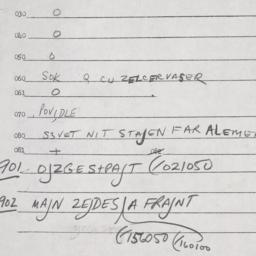 030 O
040 O
050 O
060 SOK Q CU ZELCERVASER
061 O
070 POVIDLE
080 SSVET NIT STAJEN FAR ALEME
081 +
901 OJZGESTPAJT (/021050
902 MAJN ZEJDES JA FRAJNT
(/156050 (/160100